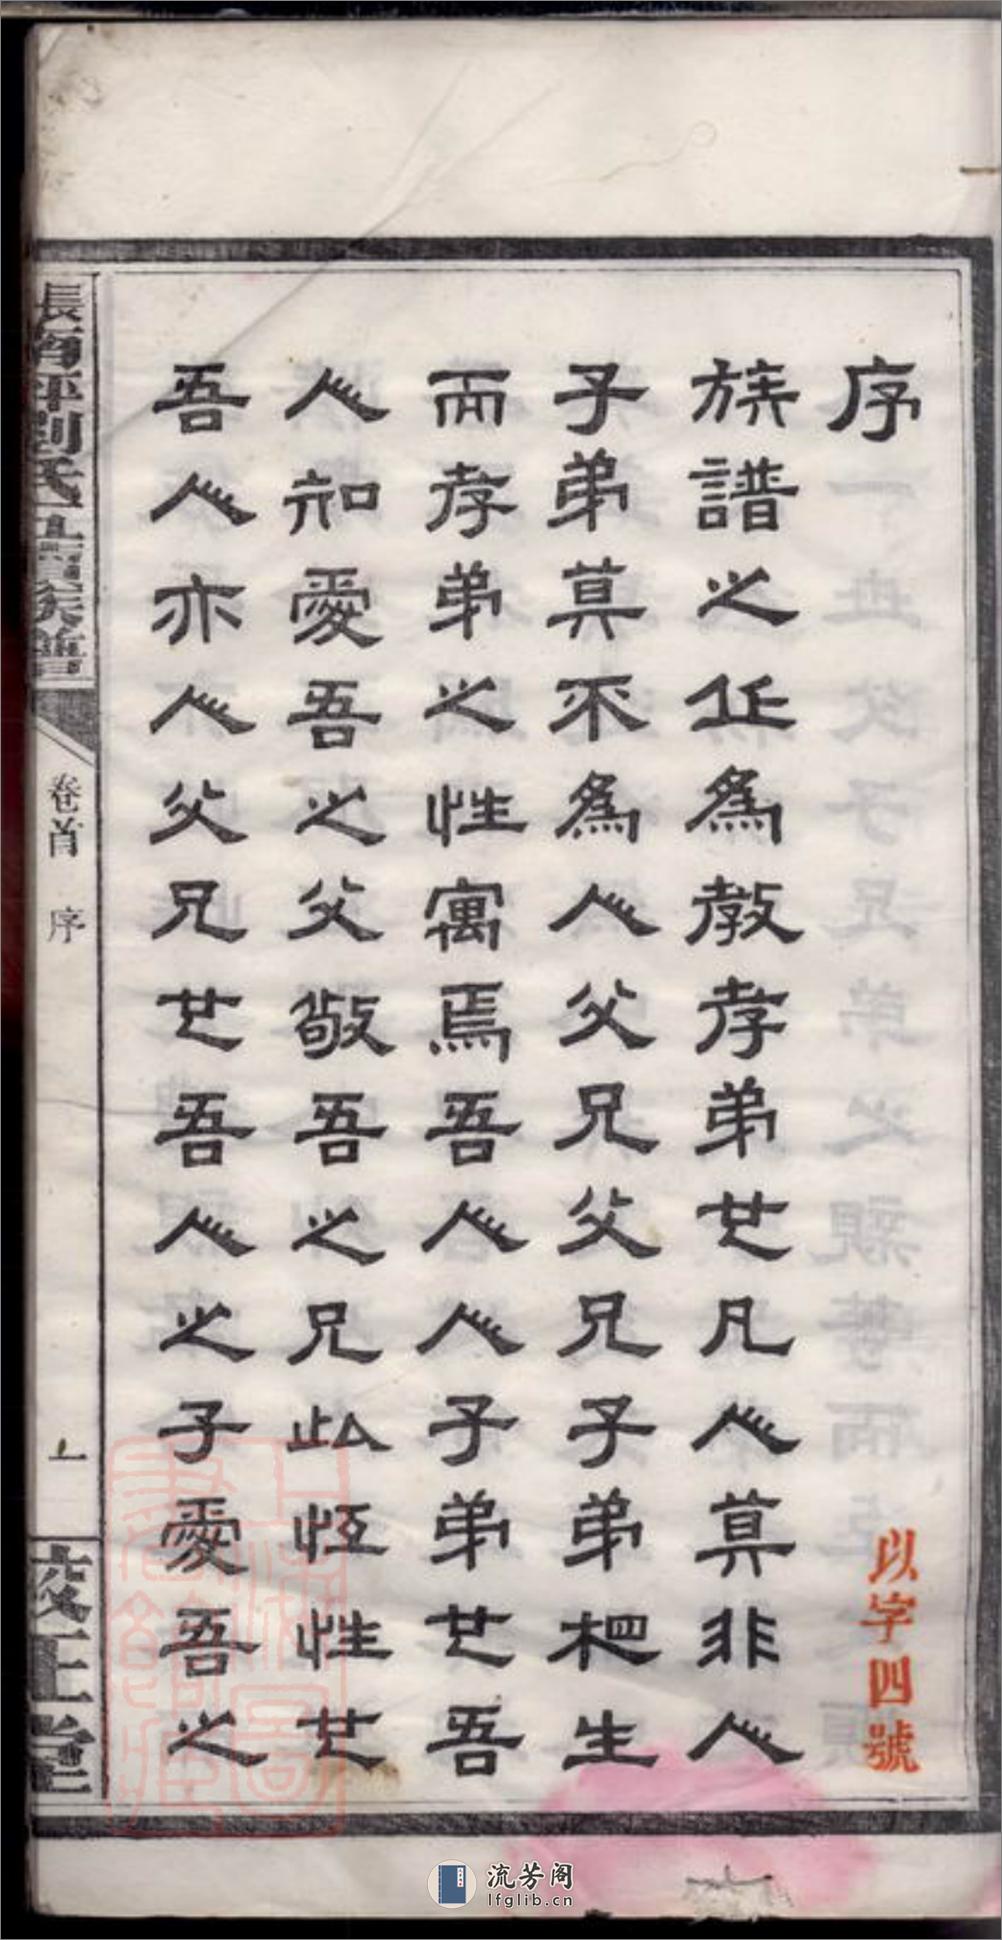 序
以字四號
族譜之作爲教孝弟也凡人莫非人
子弟莫不爲人父兄父兄子弟相生
而孝弟之性寓焉吾人人子弟也吾
人知愛吾之父敬吾之兄此恆性也
吾人亦人父兄也吾人之子愛吾之
長 坪劉氏五修族譜
卷首 序
一
堂
流芳阁
lfglib.cn